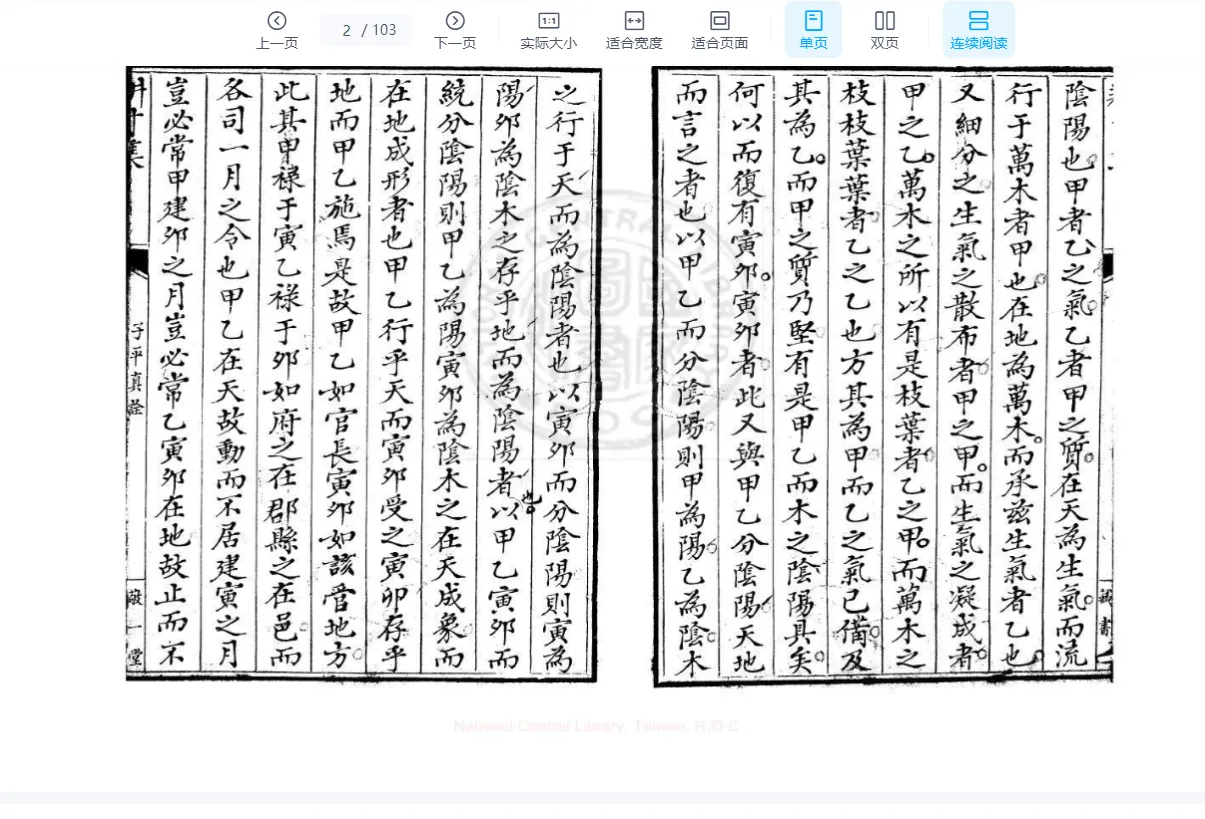 上一页
2 / 103
下一页
1:1
实际大小
适合宽度
适合页面
单页
双页
连续阅读
陰陽也甲者乙之氣乙者甲之質在天為生氣而流
行于萬木者甲也在地為萬木而承兹生氣者乙也
又細分之生氣之散布者甲之甲而生氣之凝成者
甲之乙萬木之所以有是枝葉者乙之甲而萬木之
枝枝葉葉者乙之乙也方其為甲而乙之氣已備及
其為乙而甲之質乃堅有是甲乙而木之陰陽具矣
何以而復有寅夘寅夘者此又與甲乙分陰陽天地
而言之者也以甲乙而分陰陽則甲為陽乙為陰木
之行于天而為陰陽者也以寅夘而分陰陽則寅為
陽夘為陰木之存乎地而為陰陽者也以甲乙寅夘而
統分陰陽則甲乙為陽寅夘為陰木之在天成象而
在地成形者也甲乙行乎天而寅夘受之寅卯存乎
地而甲乙施焉是故甲乙如官長寅夘如該管地方
此其甲禄于寅乙禄于夘如府之在郡縣之在邑而
各司一月之令也甲乙在天故動而不居建寅之月
豈必常甲建夘之月豈必常乙寅夘在地故止而不
子平真詮
National Central Library, Taiwan, R.O.C